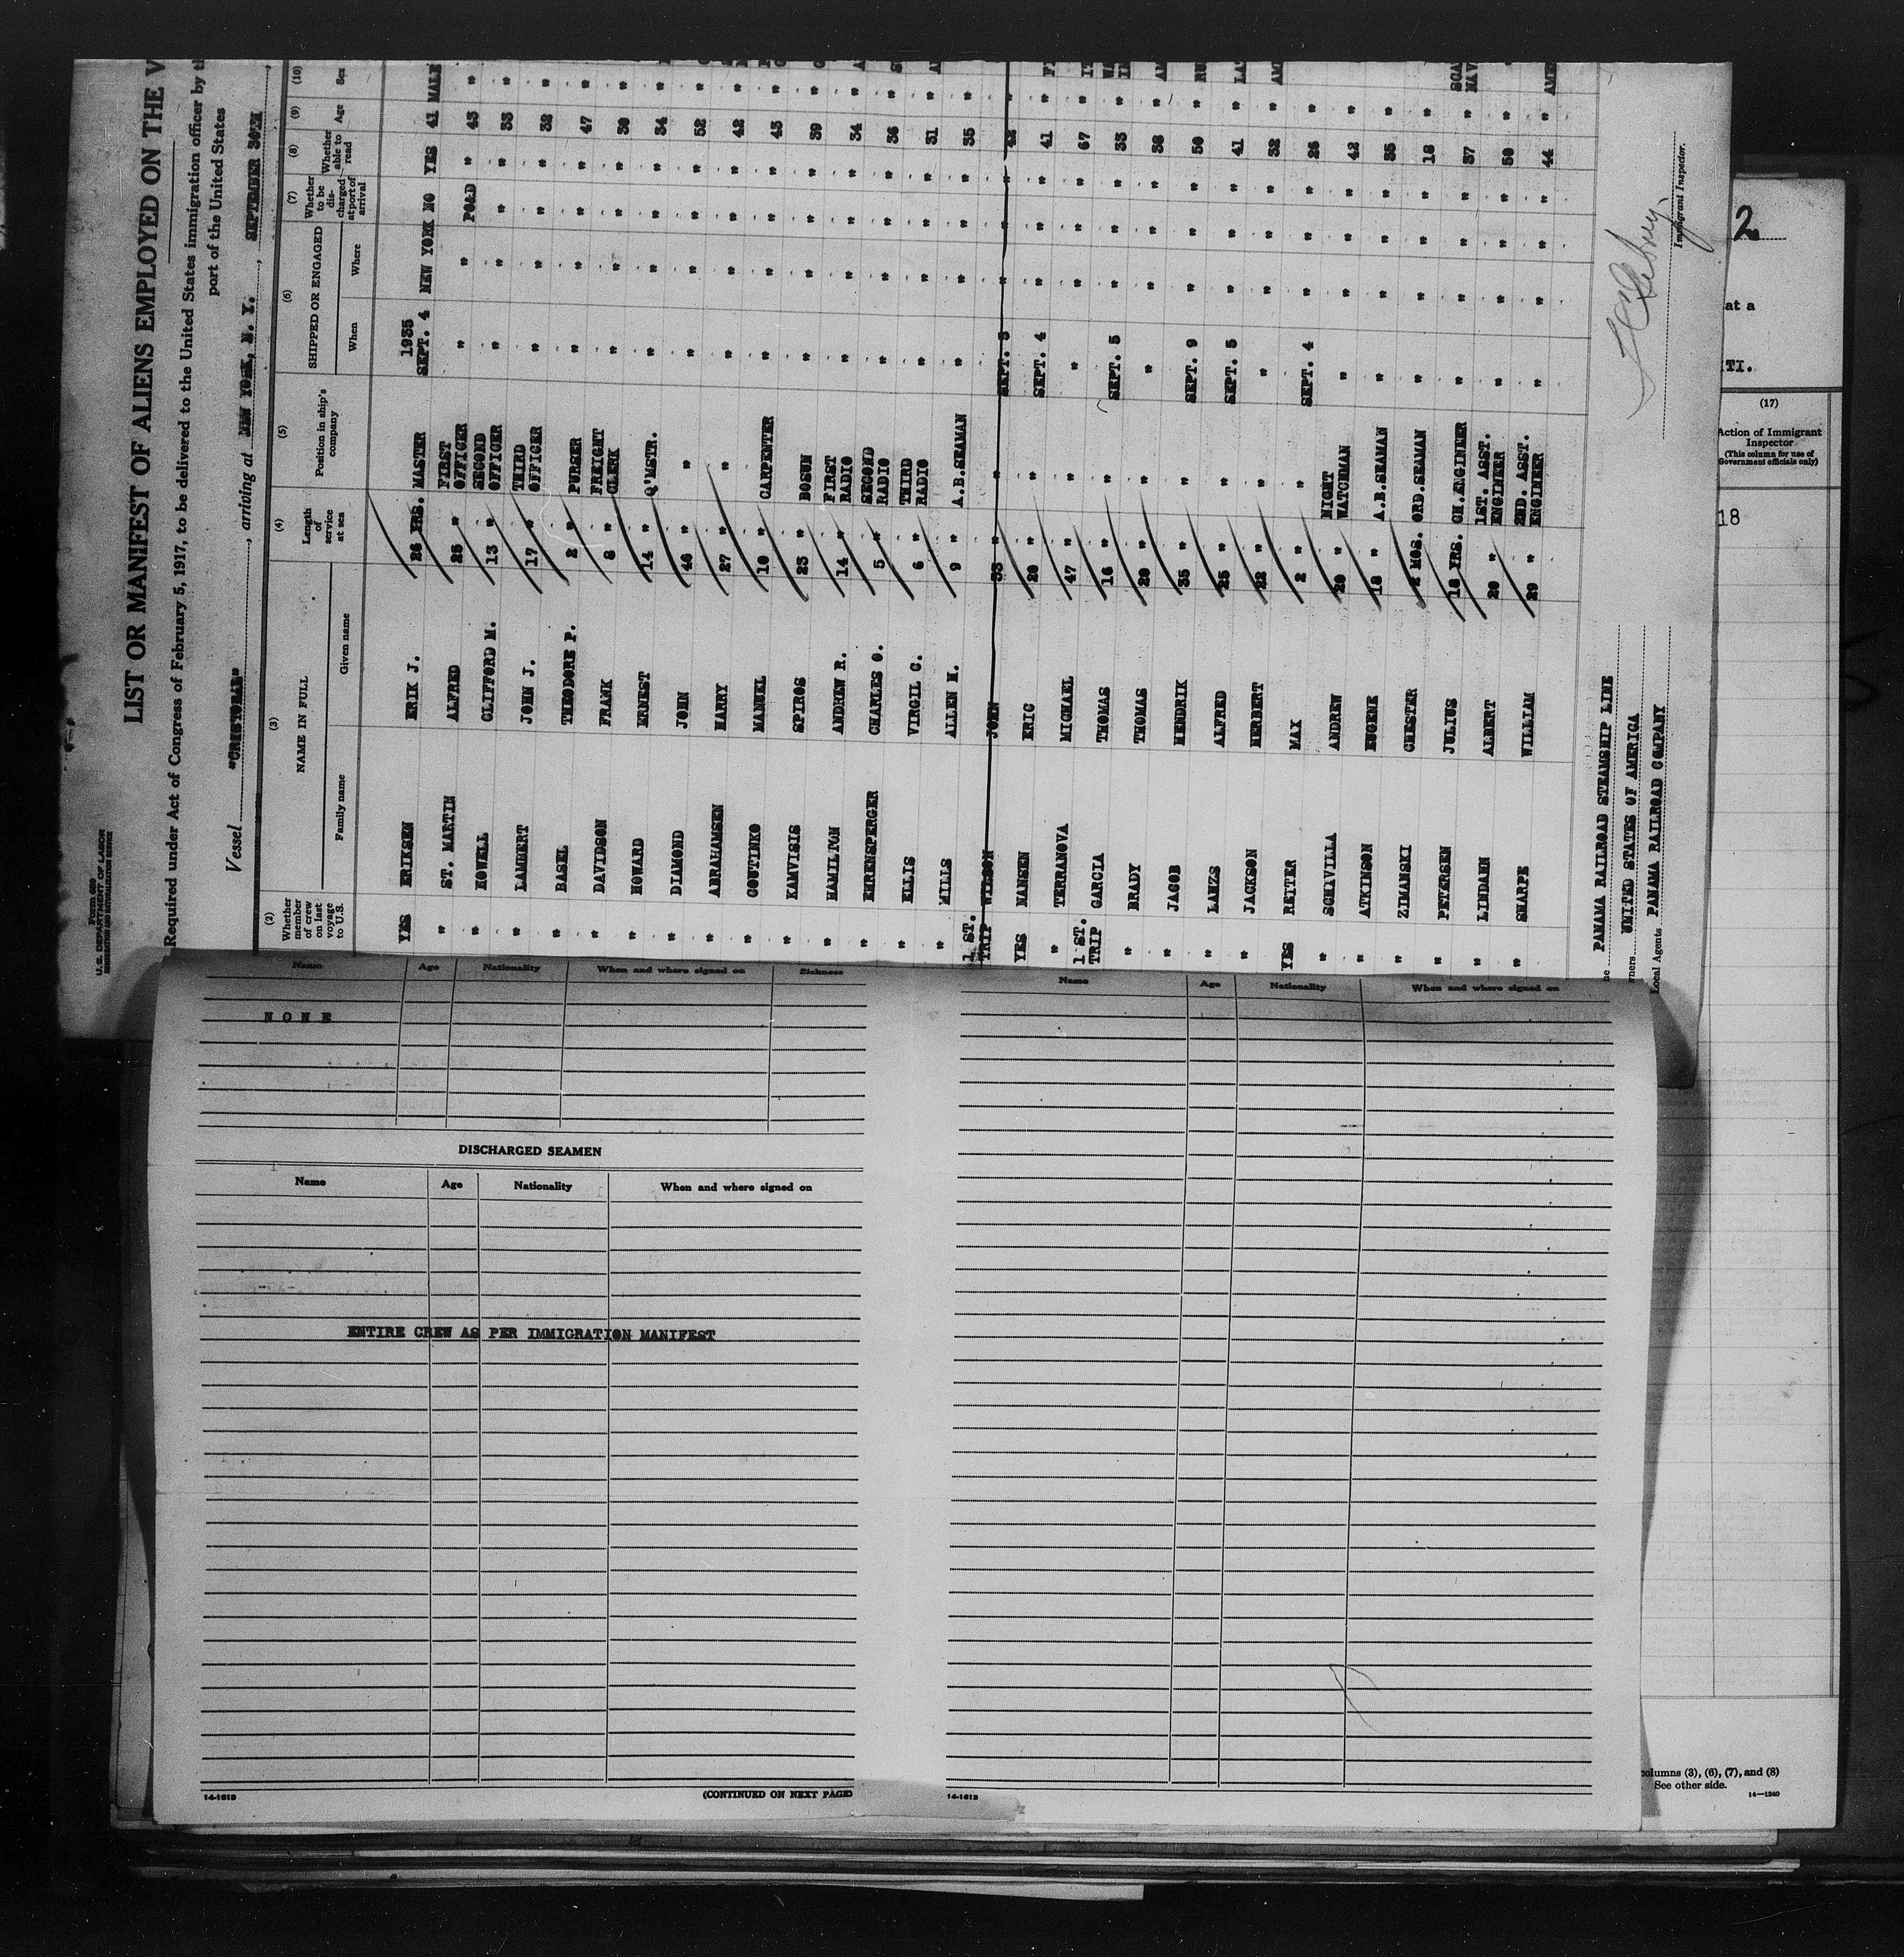 Form 680
U. S. DEPARTMENT OF LABOR
IMMIGRATION AND NATURALIZATION SERVICE
LIST OR MANIFEST OF ALIENS EMPLOYED ON THE V
Required under Act of Congress of February 5, 1917, to be delivered to the United States immigration officer by th
port of the United States
Vessel "CRISTOBAL", arriving at NEW YORK, N. Y., SEPTEMBER 30TH,
(2) (3) (4) (5) (6) (7) (8) (9) (10)
Whether member of crew on last voyage to U.S. NAME IN FULL Length of service at sea Position in ship's company SHIPPED OR ENGAGED Whether to be discharged at port of arrival Whether able to read Age Sex
Family name Given name When Where
1935
YES ERIKSEN ERIK J. 26 YRS. MASTER SEPT. 4 NEW YORK NO YES 41 MALE
" ST. MARTIN ALFRED 25 " FIRST OFFICER " " PO&D " 43 "
" HOWELL CLIFFORD M. 13 " SECOND OFFICER " " " " 33 "
" LAMBERT JOHN J. 17 " THIRD OFFICER " " " " 32 "
" BASEL THEODORE P. 2 " PURSER " " " " 47 "
" DAVIDSON FRANK 8 " FREIGHT CLERK " " " " 30 "
" HOWARD ERNEST 14 " Q'MSTR. " " " " 34 "
" DIAMOND JOHN 46 " " " " " " 52 "
" ABRAHAMSEN HARRY 27 " " " " " " 42 "
" COUTINKO MANUEL 10 " CARPENTER " " " " 43 "
" KAMVISIS SPIROS 23 " BOSUN " " " " 39 "
" HAMILTON ANDREW R. 14 " FIRST RADIO " " " " 34 "
" EHRENSPERGER CHARLES O. 5 " SECOND RADIO " " " " 36 "
" ELLIS VIRGIL C. 6 " THIRD RADIO " " " " 31 "
" MILLS ALLEN H. 9 " A.B.SEAMAN " " " " 35 "
1 ST. TRIP WILSON JOHN 33 " " SEPT. 3 " " " 42 "
YES HANSEN ERIC 20 " " SEPT. 4 " " " 41 "
" TERRANOVA MICHAEL 47 " " " " " " 67 "
1 ST. TRIP GARCIA THOMAS 16 " " SEPT. 5 " " " 33 "
" BRADY THOMAS 20 " " " " " " 38 "
" JACOB HENDRIK 35 " " SEPT. 9 " " " 50 "
" LANZS ALFRED 25 " " SEPT. 5 " " " 41 "
" JACKSON HERBERT 22 " " " " " " 32 "
YES REITER MAX 2 " " SEPT. 4 " " " 26 "
" SCHAVILLA ANDREW 20 " NIGHT WATCHMAN " " " " 42 "
" ATKINSON EUGENE 18 " A.B.SEAMAN " " " " 35 "
" ZIMANSKI CHESTER 2 MOS. ORD.SEAMAN " " " " 18 "
" PETERSEN JULIUS 18 YRS. CH.ENGINEER " " " " 37 "
" LINDAHN ALBERT 20 " 1ST. ASST. ENGINEER " " " " 50 "
" SHARPE WILLIAM 29 " 2ND. ASST. ENGINEER " " " " 44 "
ne PANAMA RAILROAD STEAMSHIP LINE
wners UNITED STATES OF AMERICA
Local Agents PANAMA RAILROAD COMPANY
Immigrant Inspector.
2
at a
TI.
(17)
Action of Immigrant
Inspector
(This column for use of
Government officials only)
18
Name Age Nationality When and where signed on Sickness
NONE
DISCHARGED SEAMEN
Name Age Nationality When and where signed on
ENTIRE CREW AS PER IMMIGRATION MANIFEST
14-1613
(CONTINUED ON NEXT PAGE)
Name Age Nationality When and where signed on
14-1613
columns (3), (6), (7), and (8)
See other side.
14—1240